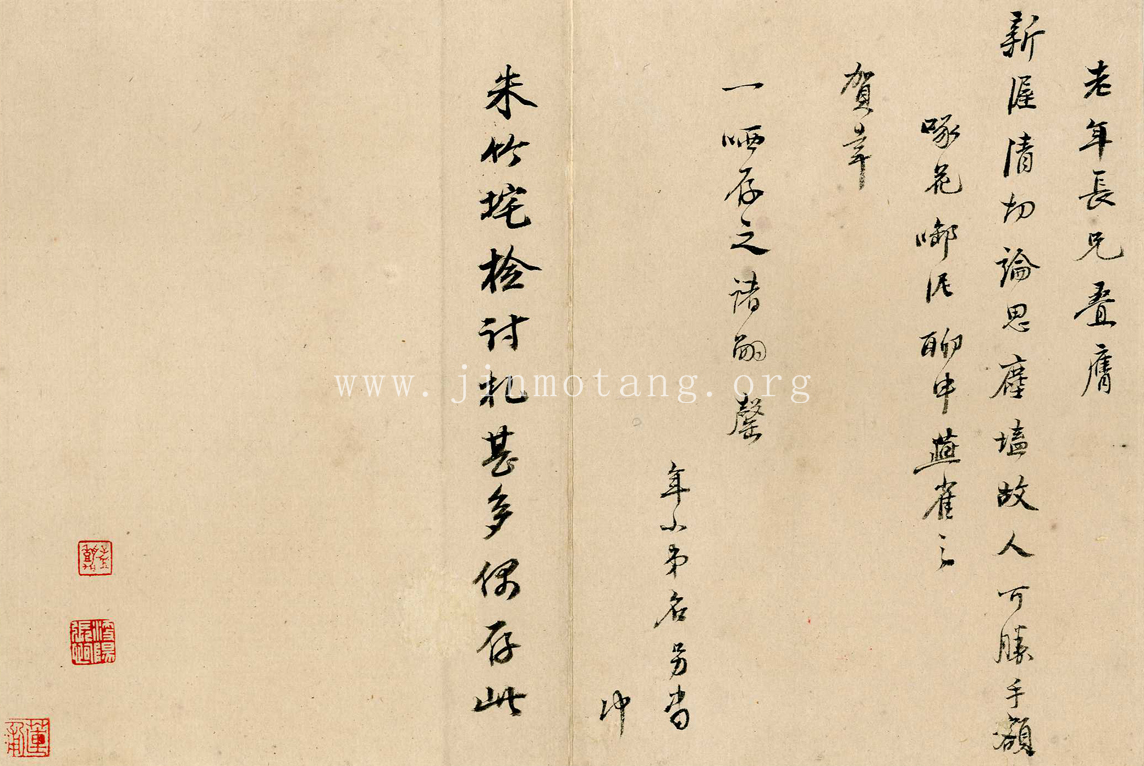 老年長兄叠膺
新渥清切論思塵壒故人可勝手額
啄花啣泥聊申燕雀之
賀幸
一哂存之諸嗣罄
年小弟名另肅
冲
朱竹垞檢討札甚多偶存此
www.jinmotang.org